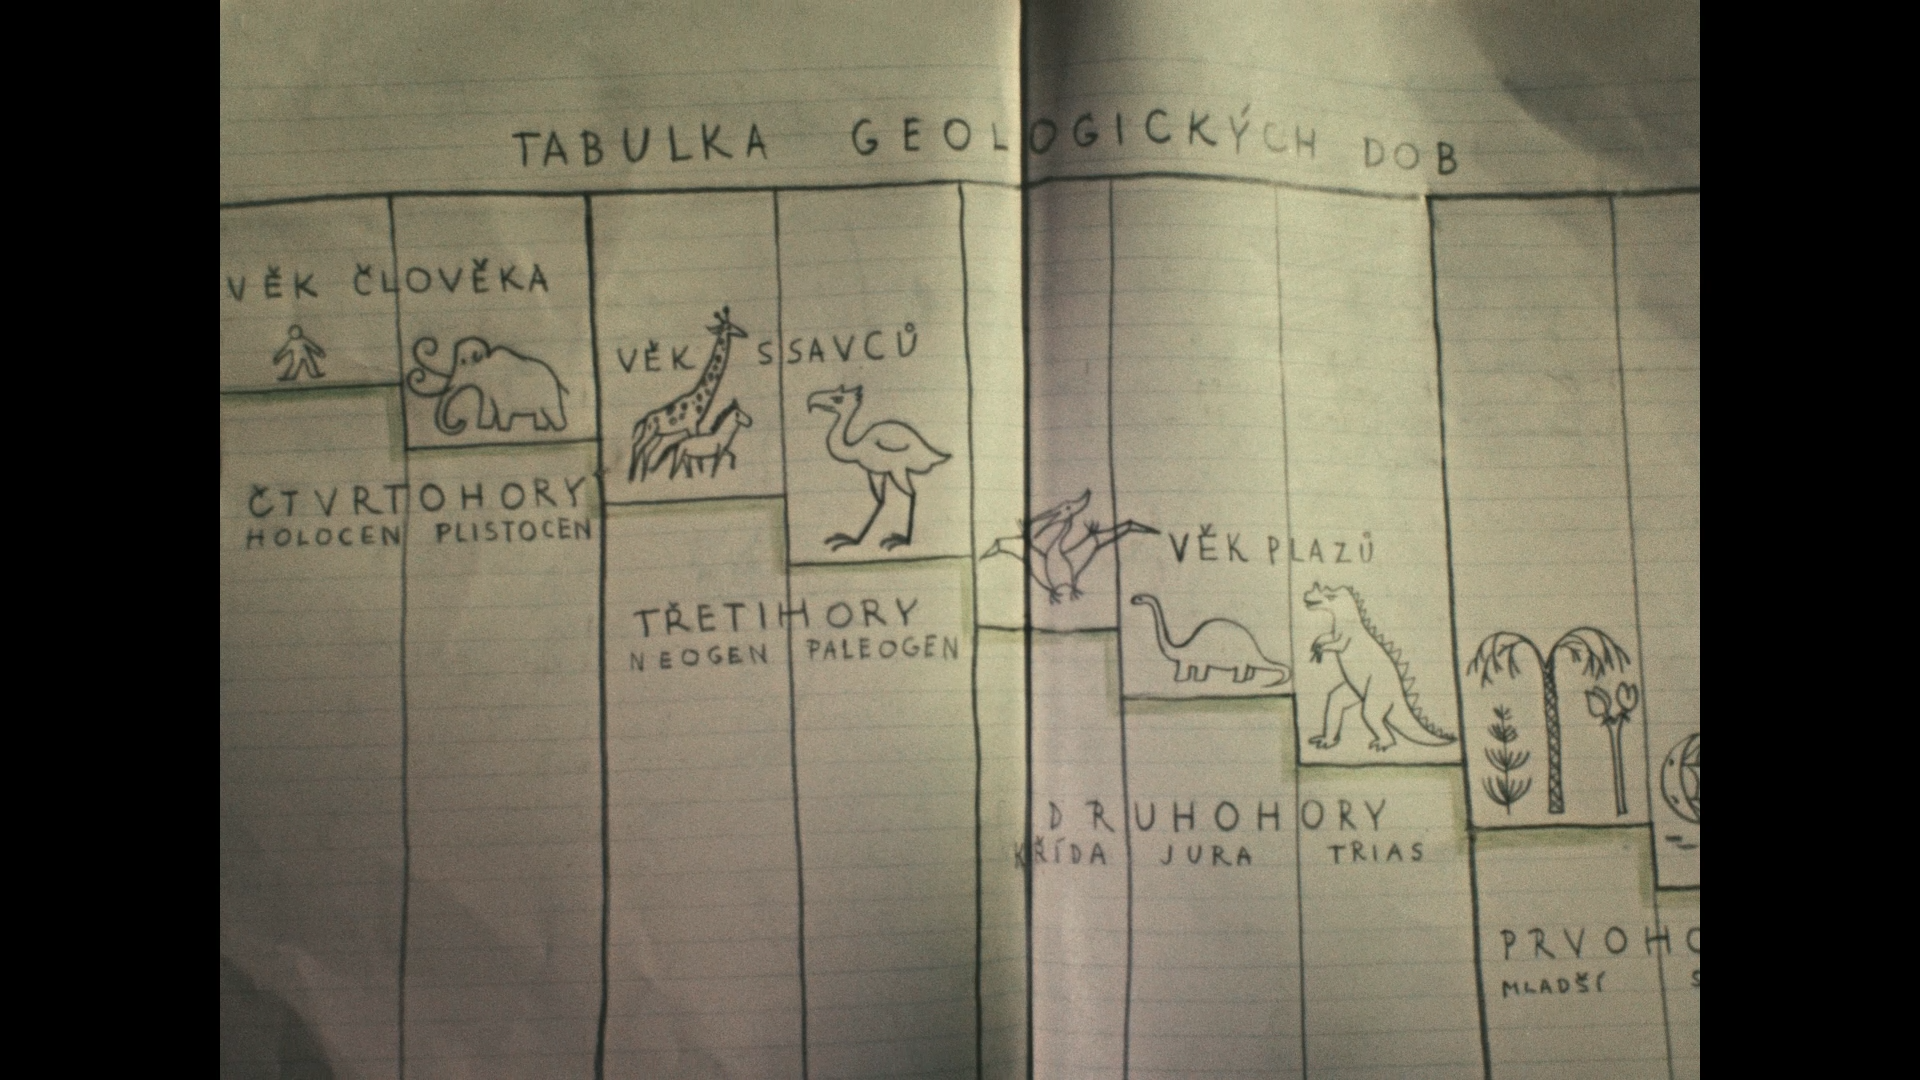 TABULKA GEOLOGICKÝCH DOB
VĚK ČLOVĚKA
VĚK SSAVCŮ
ČTVRTOHORY
HOLOCEN PLISTOCEN
VĚK PLAZŮ
TŘETIHORY
NEOGEN PALEOGEN
DRUHOHORY
KŘÍDA JURA TRIAS
PRVOHO
MLADŠÍ S